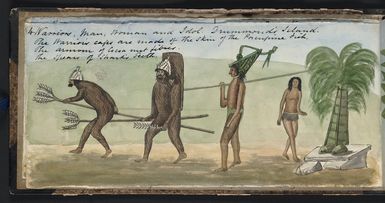 4 Warriors, Man, Woman and Idol Drummond's Island.
The Warrior caps are made of the skin of the Porcupine Fish.
The armour of Cocoa nut fibres.
The Spears of Sharks teeth.